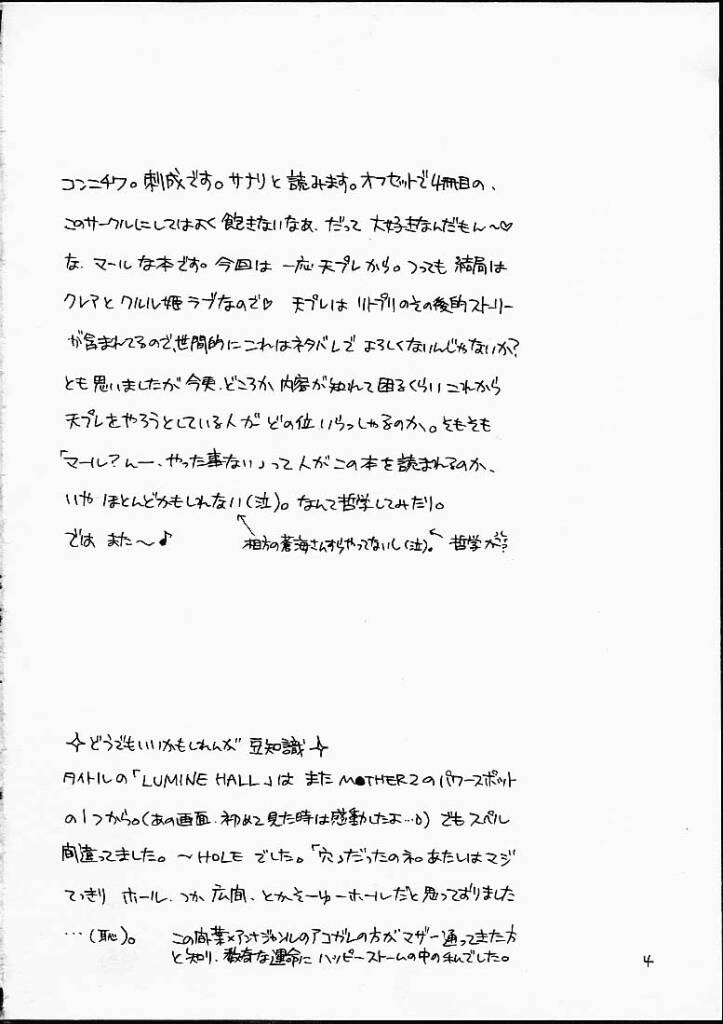 コンニチワ。刺成です。サナリと読みます。オフセットで4冊目の、
このサークルにしてはよく飽きないなぁ、だって大好きなんだもん〜♡
な、マールな本です。今回は一応天プレから。つっても結局は
クレアとクルル姫ラブなので♡ 天プレはリトプリのその後的ストーリー
が含まれてるので、世間的にこれはネタバレでよろしくないんじゃないか?
とも思いましたが今更、どころか内容が知れて困るくらいこれから
天プレをやろうとしている人がどの位いらっしゃるのか。そもそも
「マール?んー、やった事ない」って人がこの本を読まれるのか、
いやほとんどかもしれない(泣)。なんて哲学してみたり。
では また〜♪
相方の蒼海さんすらやってないし(泣)。 哲学か?
✧どうでもいいかもしれんが 豆知識✧
タイトルの「LUMINE HALL」は またMOTHER2のパワースポット
の1つから。(あの画面、初めて見た時は感動したよ…) でもスペル
間違ってました。〜HOLEでした。「穴」だったのネ。あたしはマジ
てっきり ホール、つか広間、とかそーゆーホールだと思っておりました
…(恥)。
この間葉×アンナジャンルのアコガレの方がマザー通ってきた方
と知り、数奇な運命にハッピーストームの中の私でした。
4